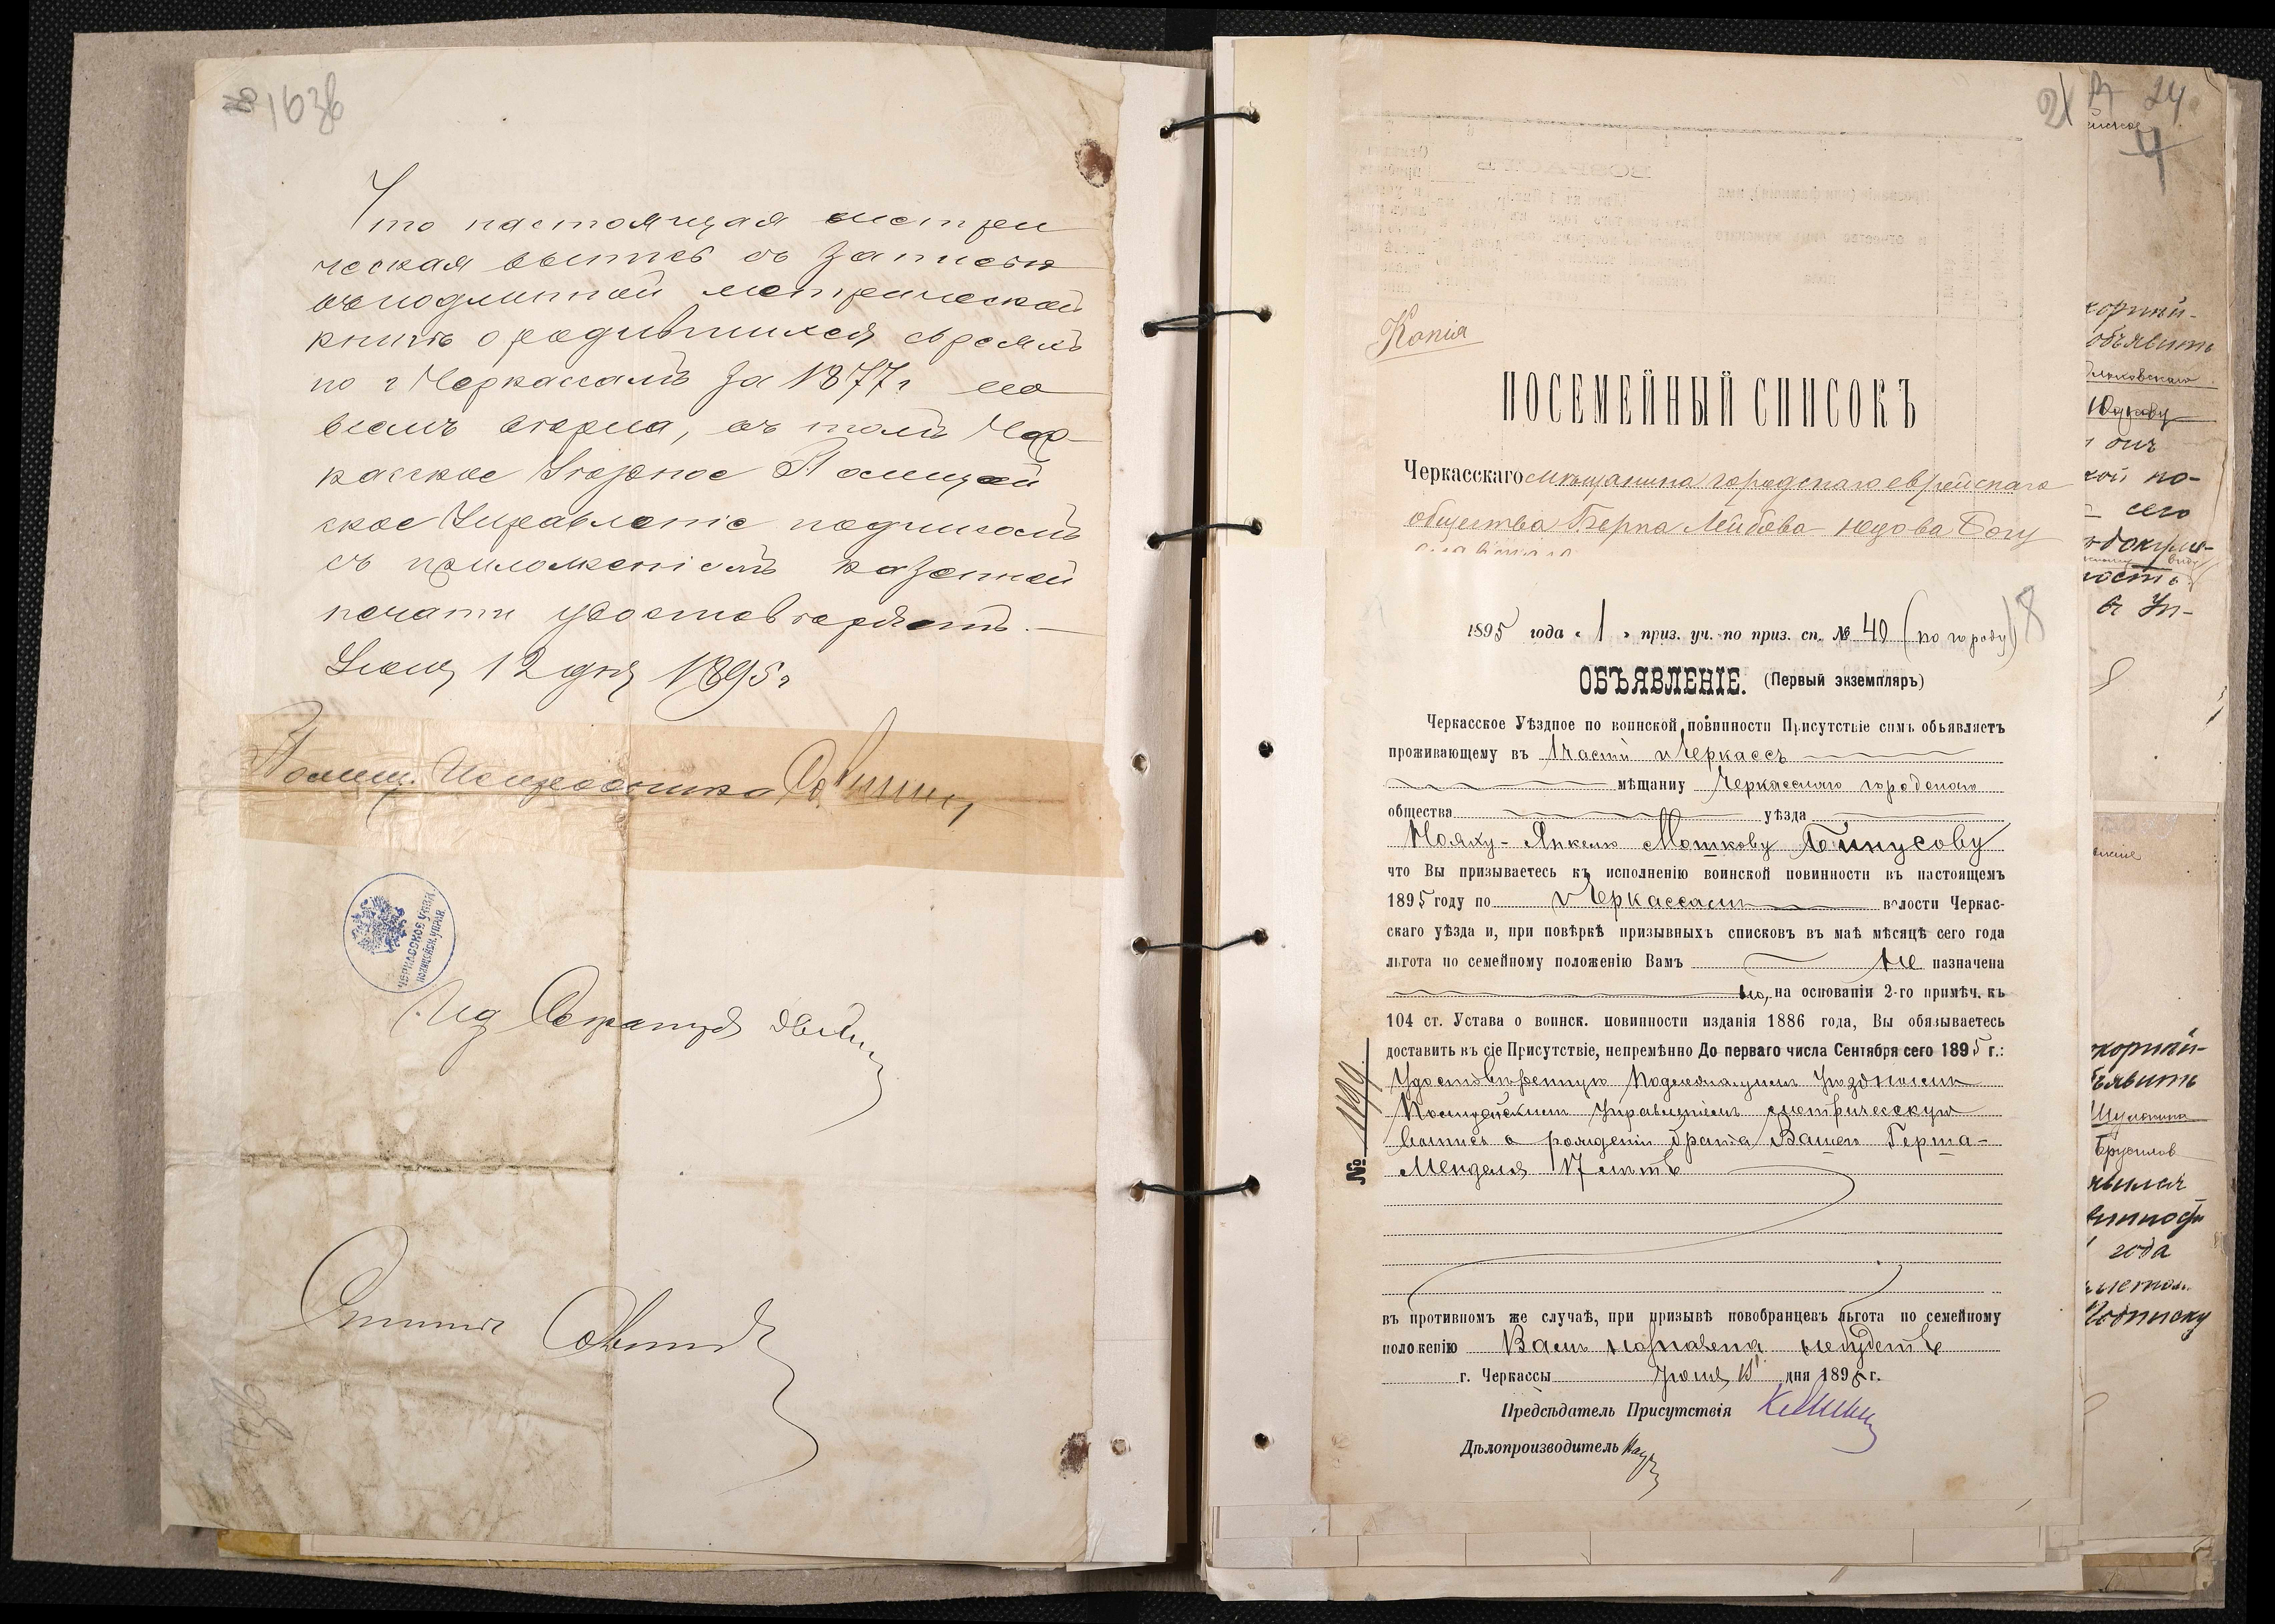 1636
Что настоящая метри
ческая выпись съ записью
въ подлинной метрической
книгѣ о родившихся евреяхъ
по г Черкассамъ за 1877 г мо
вѣсить вѣрна, въ томъ Чер-
касское Уѣздное Полицей
ское Управленіе подписомъ
съ приложеніемъ казенной
печати удостовѣряетъ.—
Іюня 12 дня 1895 г
Полиц.
ЧЕРКАССКОЕ УѢЗД.
ПОЛИЦЕЙСК. УПРАВ.
Ид Секретаря
21
24
4
Копія
ПОСЕМЕЙНЫЙ СПИСОКЪ
Черкасскаго мѣщанина городскаго еврейскаго
общества Берка Лейбова-Юдова Богу
18
1895 года « 1 » приз. уч. по приз. сп. № 40 (по городу)
ОБЪЯВЛЕНІЕ. (Первый экземпляръ)
Черкасское Уѣздное по воинской повинности Присутствіе симъ объявляетъ
проживающему въ 1 части г Черкассъ
мѣщанину Черкасскаго городскаго
общества уѣзда
Нояху-Янкелю Мошкову Бинусову
что Вы призываетесь къ исполненію воинской повинности въ настоящемъ
1895 году по г Черкассамъ волости Черкас-
скаго уѣзда и, при повѣркѣ призывныхъ списковъ въ маѣ мѣсяцѣ сего года
льгота по семейному положенію Вамъ не назначена
но, на основаніи 2-го примѣч. къ
104 ст. Устава о воинск. повинности изданія 1886 года, Вы обязываетесь
доставить въ сіе Присутствіе, непремѣнно До перваго числа Сентября сего 1895 г.:
Удостовѣренную Подлежащимъ Уѣзднымъ
Полицейскимъ Управленіемъ метрическую
выпись о рожденіи брата Вашего Герша-
Менделя 17 лѣтъ
№ 1199
въ противномъ же случаѣ, при призывѣ новобранцевъ льгота по семейному
положенію Вамъ назначена небудетъ
г. Черкассы Іюня дня 1895 г.
Предсѣдатель Присутствія
Дѣлопроизводитель
объявить
сего
года